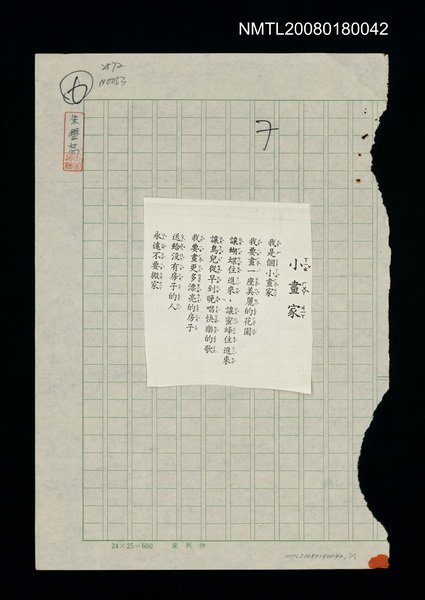 NMTL20080180042
2572
N0053
小畫家
我是個小畫家
我要畫一座美麗的花園
讓蝴蝶住進來，讓蜜蜂住進來
讓鳥兒從早到晚唱快樂的歌
我要畫更多漂亮的房子
送給沒有房子的人
永遠不要搬家
24×25=600
NMTL20080180042, 1/1